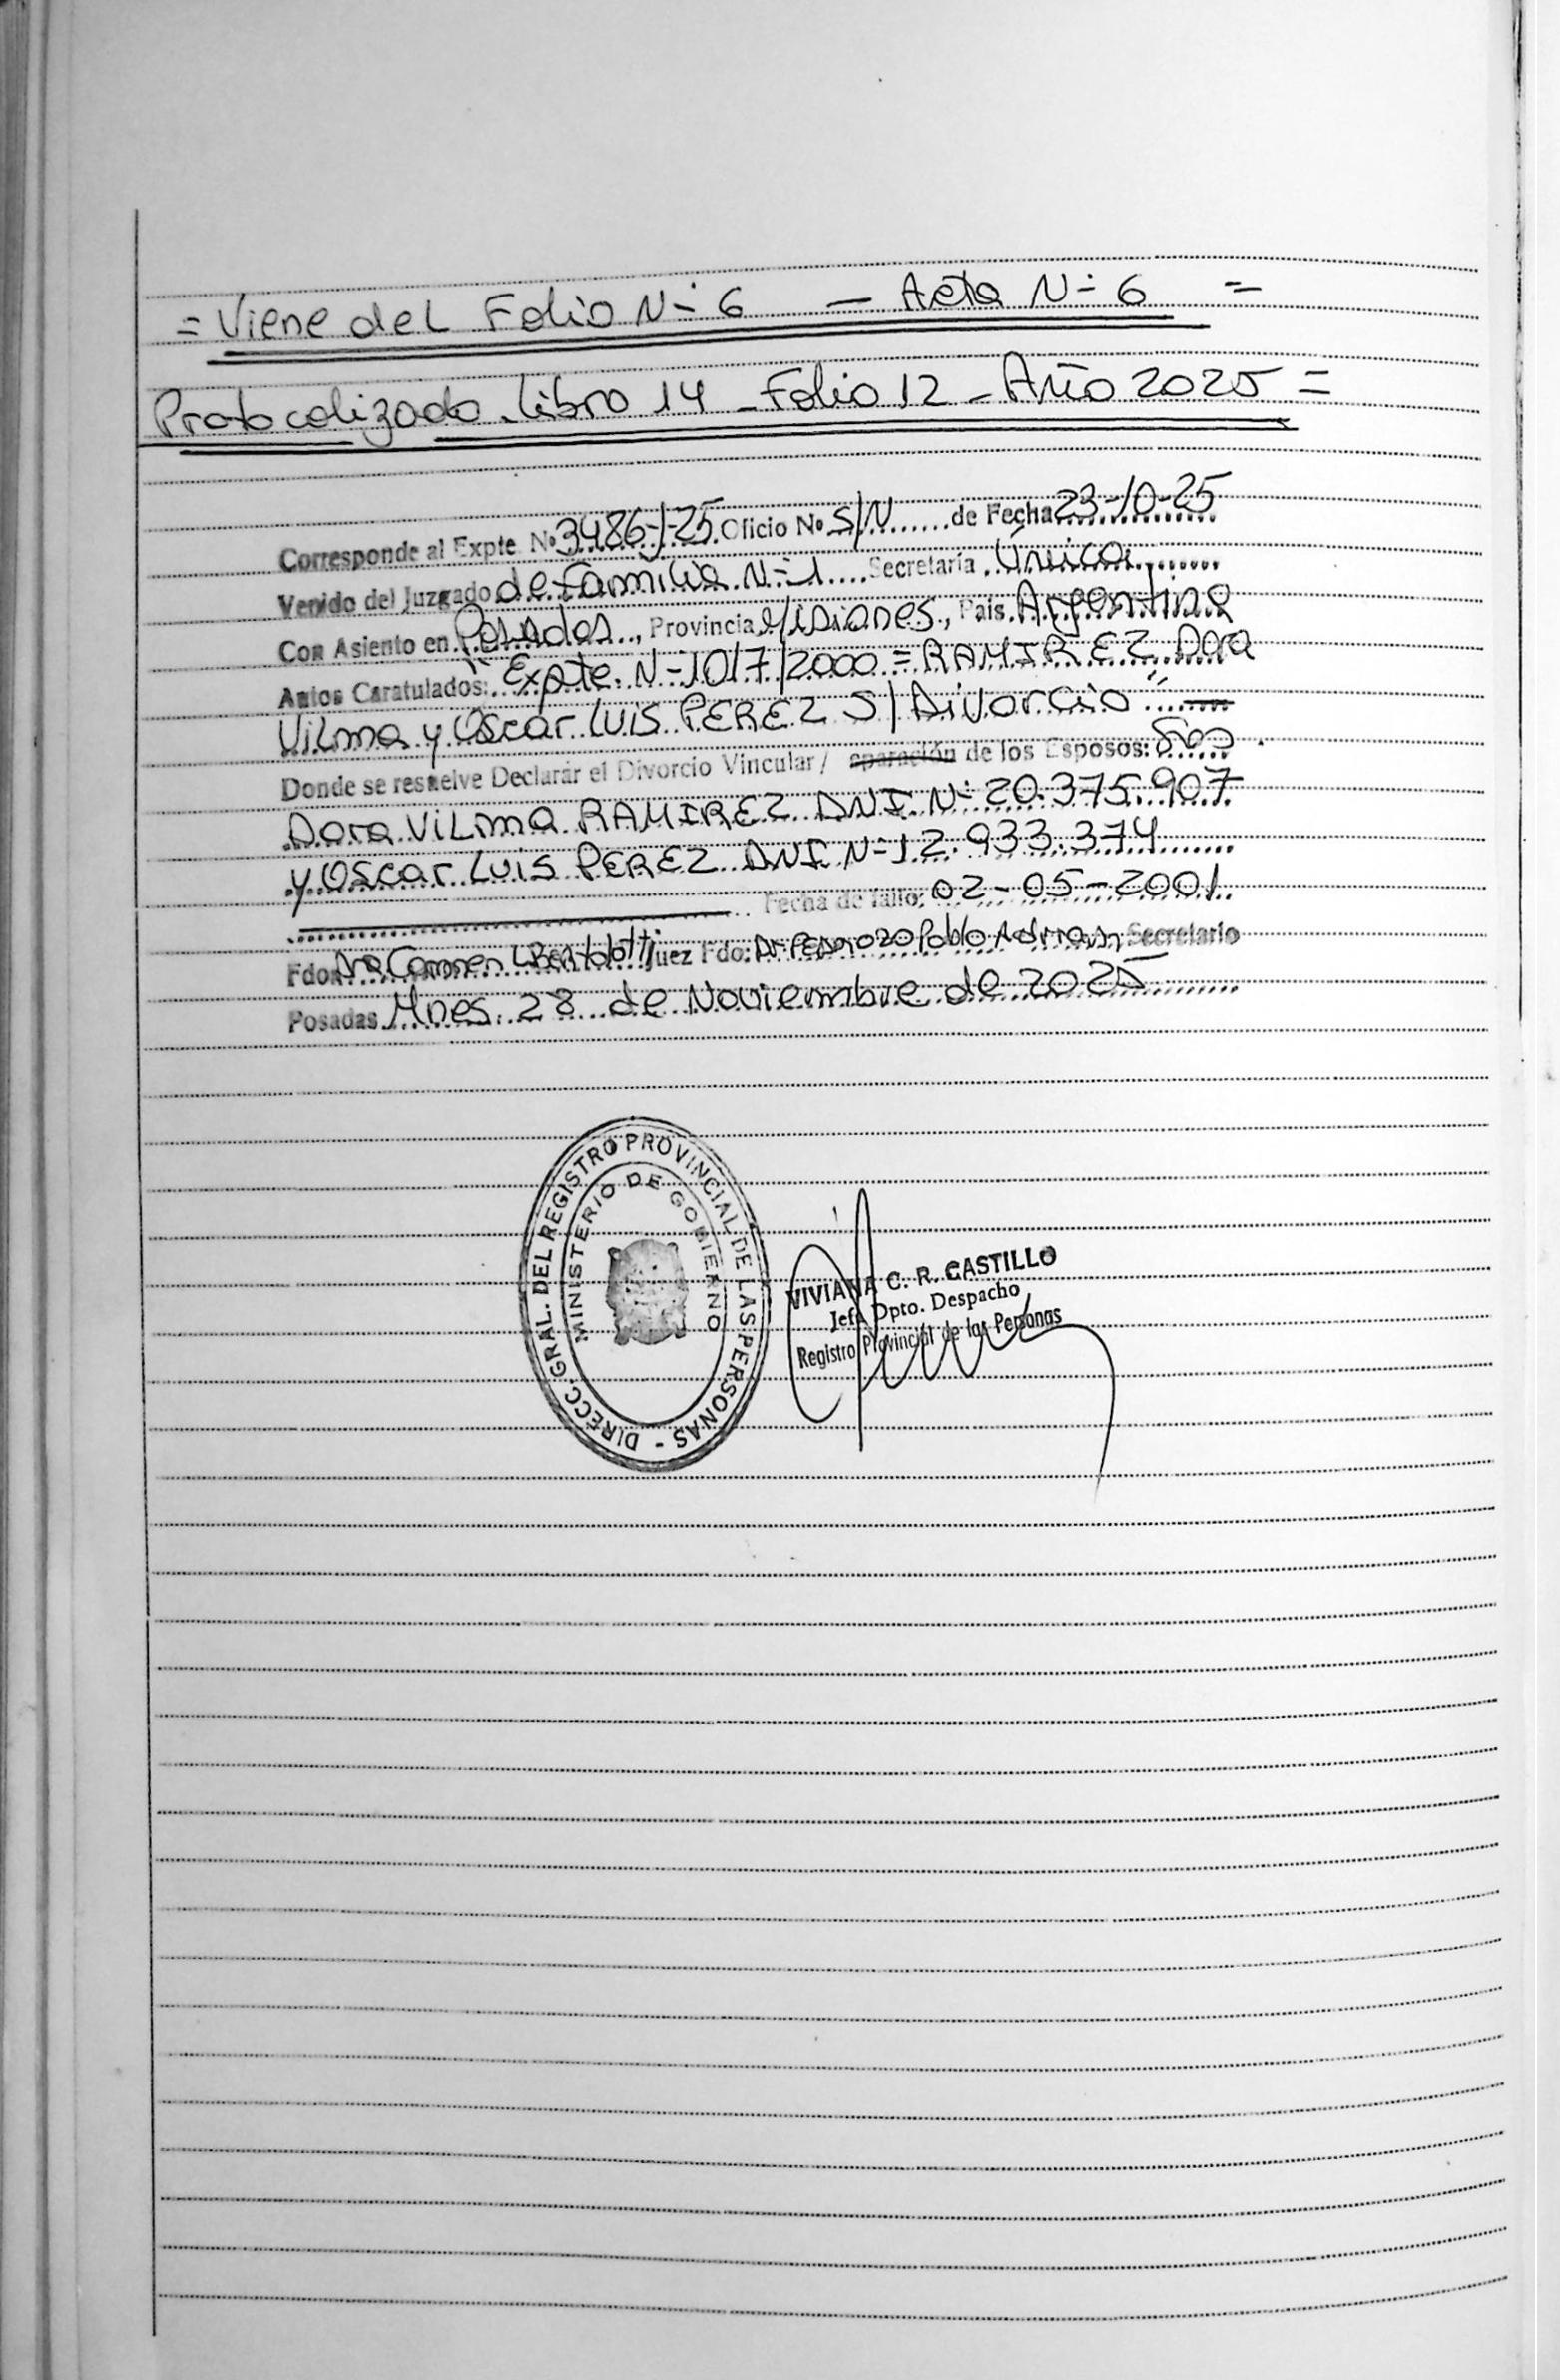 = Viene del Folio N= 6 — Acta N= 6 =
Protocolizado. Libro 14 - Folio 12 - Año 2025 =
Corresponde al Expte. Nº 3486-/-25. Oficio Nº S/N...... de Fecha 23-10-25
Venido del Juzgado de Familia N=1.... Secretaría. Unica.......
Con Asiento en Posadas..., Provincia Misiones., País. Argentina
Autos Caratulados: "Expte. N=1017/2000 = RAMIREZ Dora
Vilma y Oscar Luis PEREZ S/Divorcio"....
Donde se resuelve Declarár el Divorcio Vincular / eparación de los Esposos:
Dora Vilma RAMIREZ DNI. N= 20.375.907
y Oscar Luis PEREZ DNI. N=12.933.374
Fecha de fallo: 02-05-2001.
Fdo: Dra Carmen L Bertolotti Juez Fdo: Dr Pedrozo Pablo Adrian, Secretario
Posadas Mnes. 28 de Noviembre de 2025
DIRECC. GRAL. DEL REGISTRO PROVINCIAL DE LAS PERSONAS -
MINISTERIO DE GOBIERNO
VIVIANA C. R. CASTILLO
Jefe Dpto. Despacho
Registro Provincial de las Personas